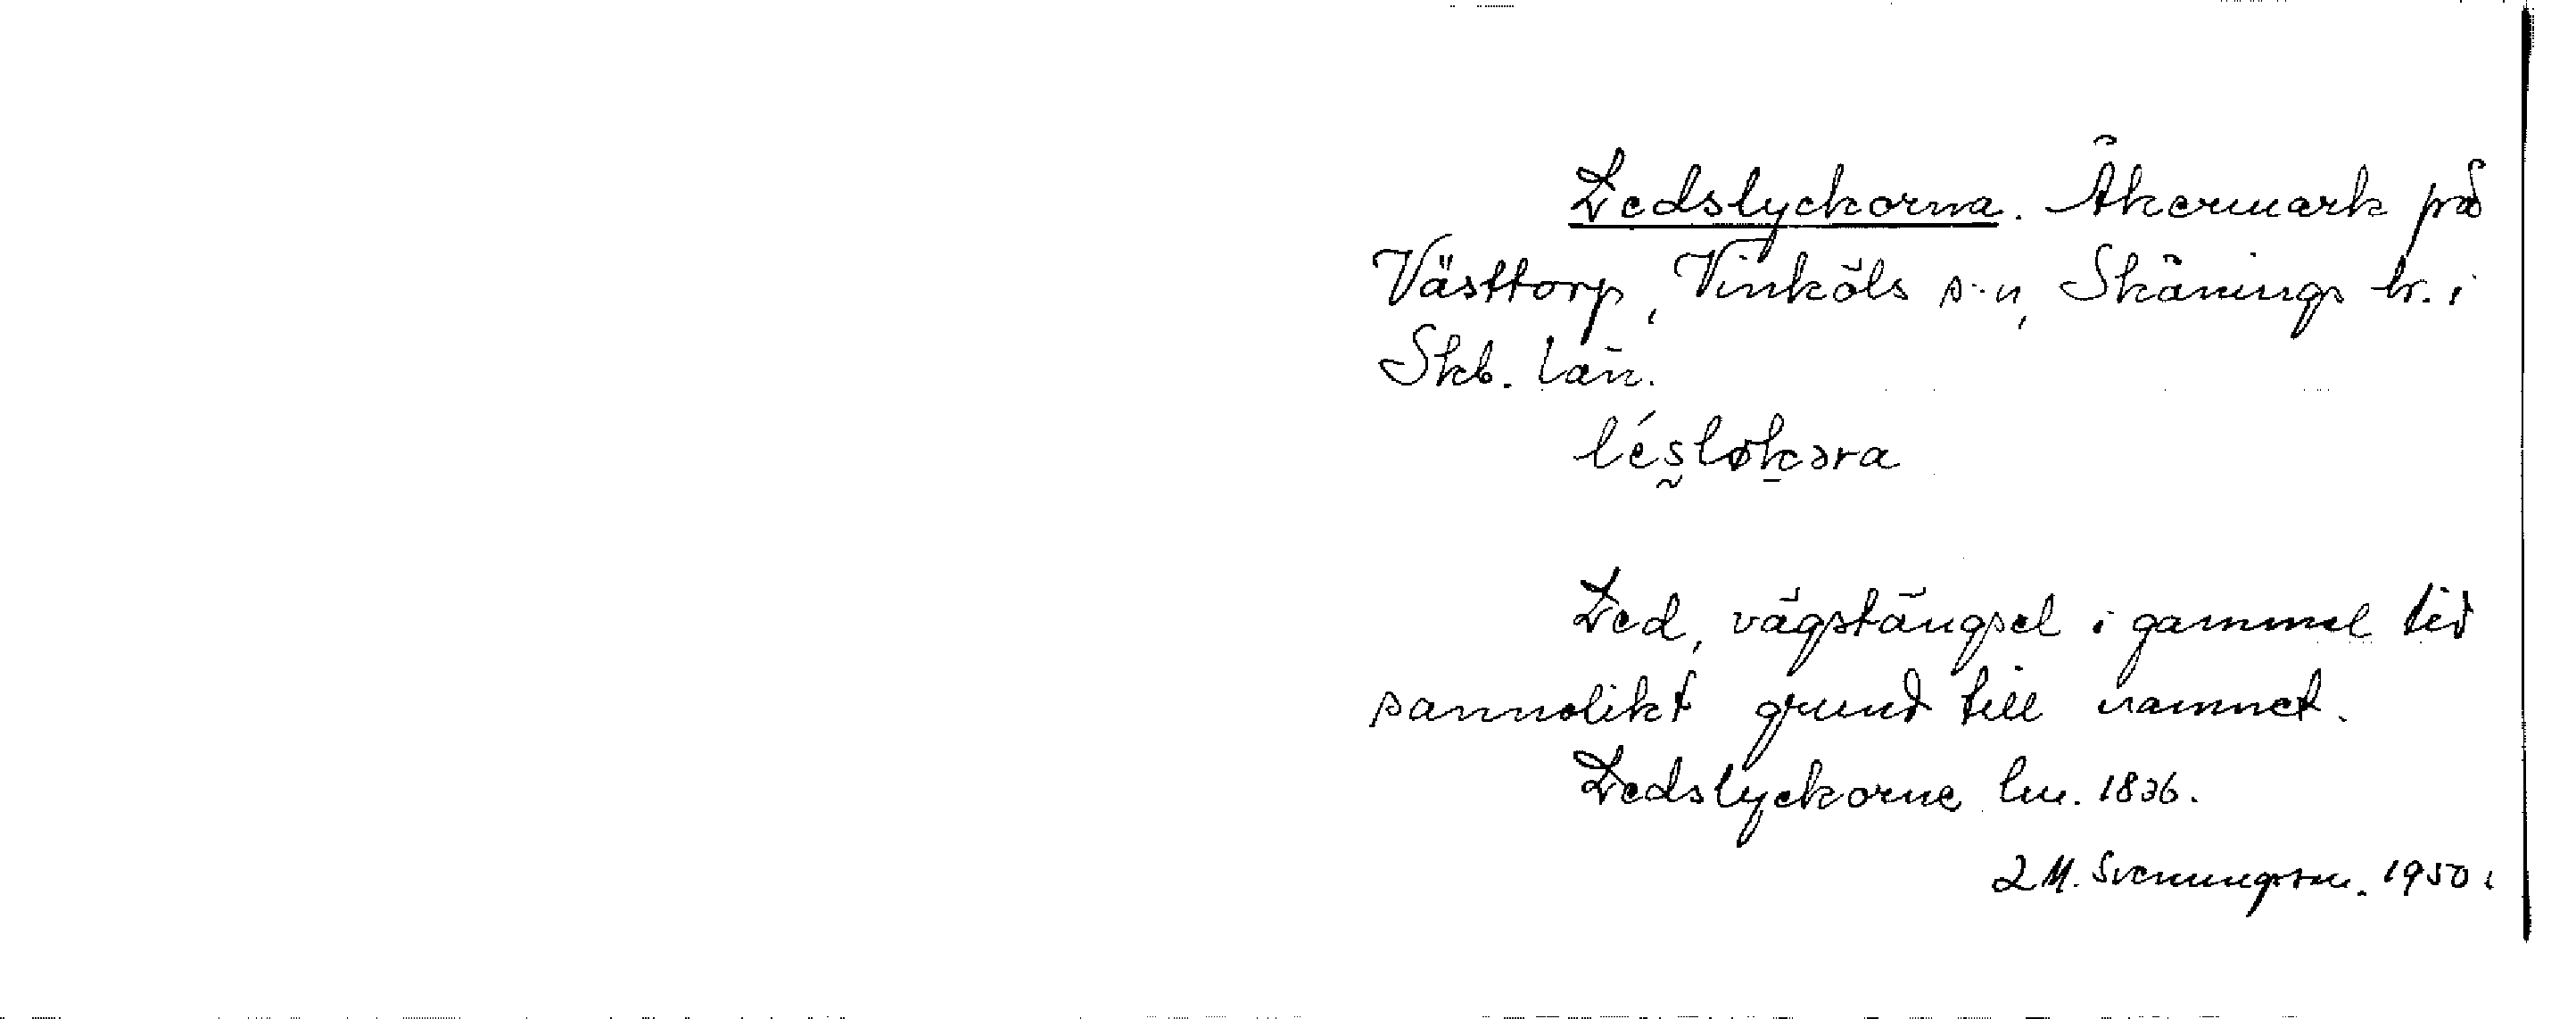 Ledslyckorna. Åkermark på
Västtorp, Vinköls s-n, Skånings hr. i
Skb. län.
lésløkəra
Led, vägstängsel i gammal tid
sannolikt grund till namnet.
Ledslyckorne lm. 1836.
L M. Svenungsson. 1950.